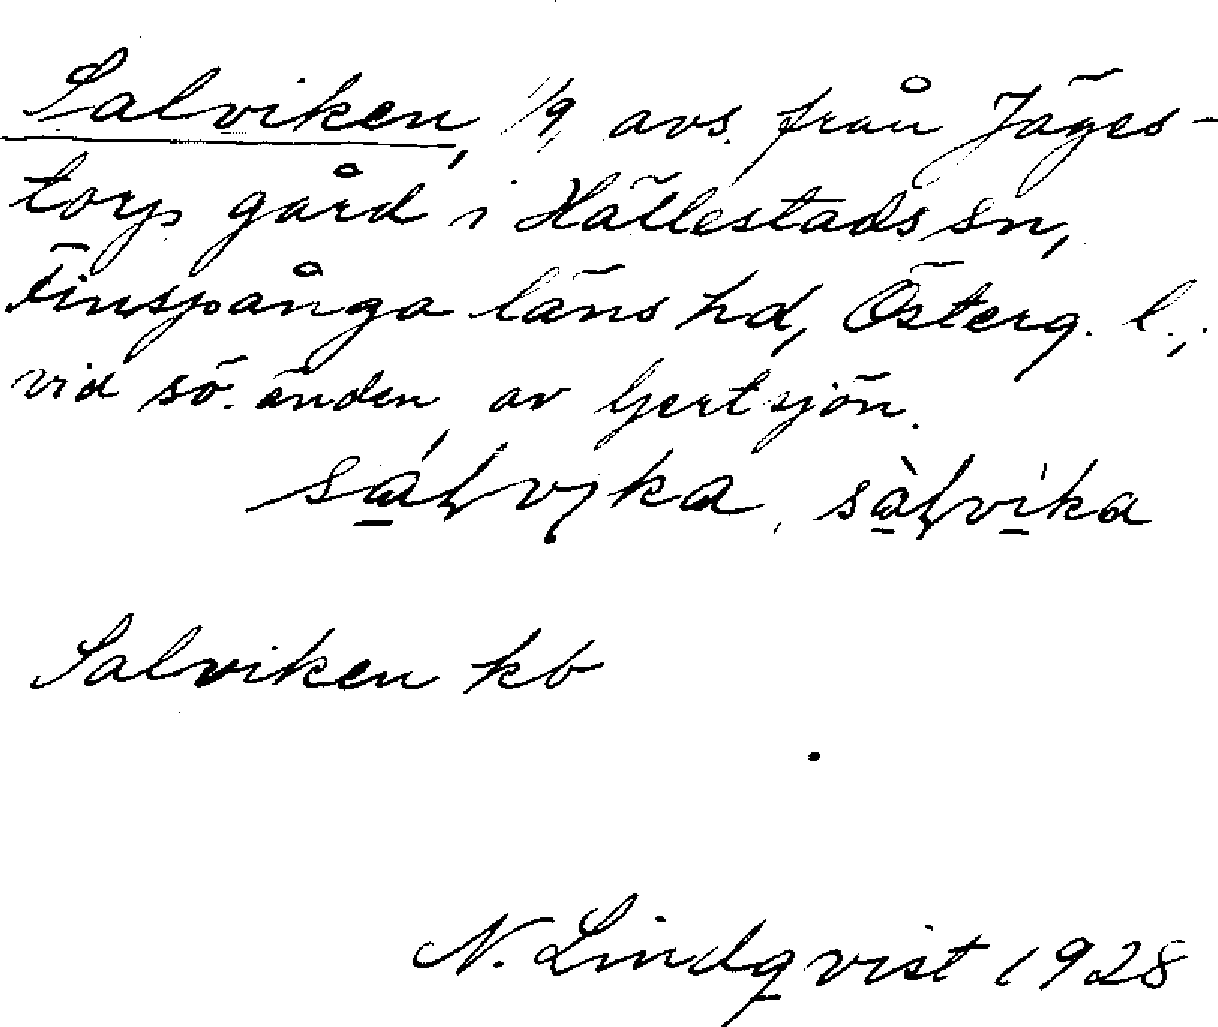 Salviken, 1/9, avs. från Jäges-
torp gård i Hällestads sn,
Finspånga läns hd, Österg. l.,
vid sö. änden av Gertsjön.
Salviken kb
N. Lindqvist 1928